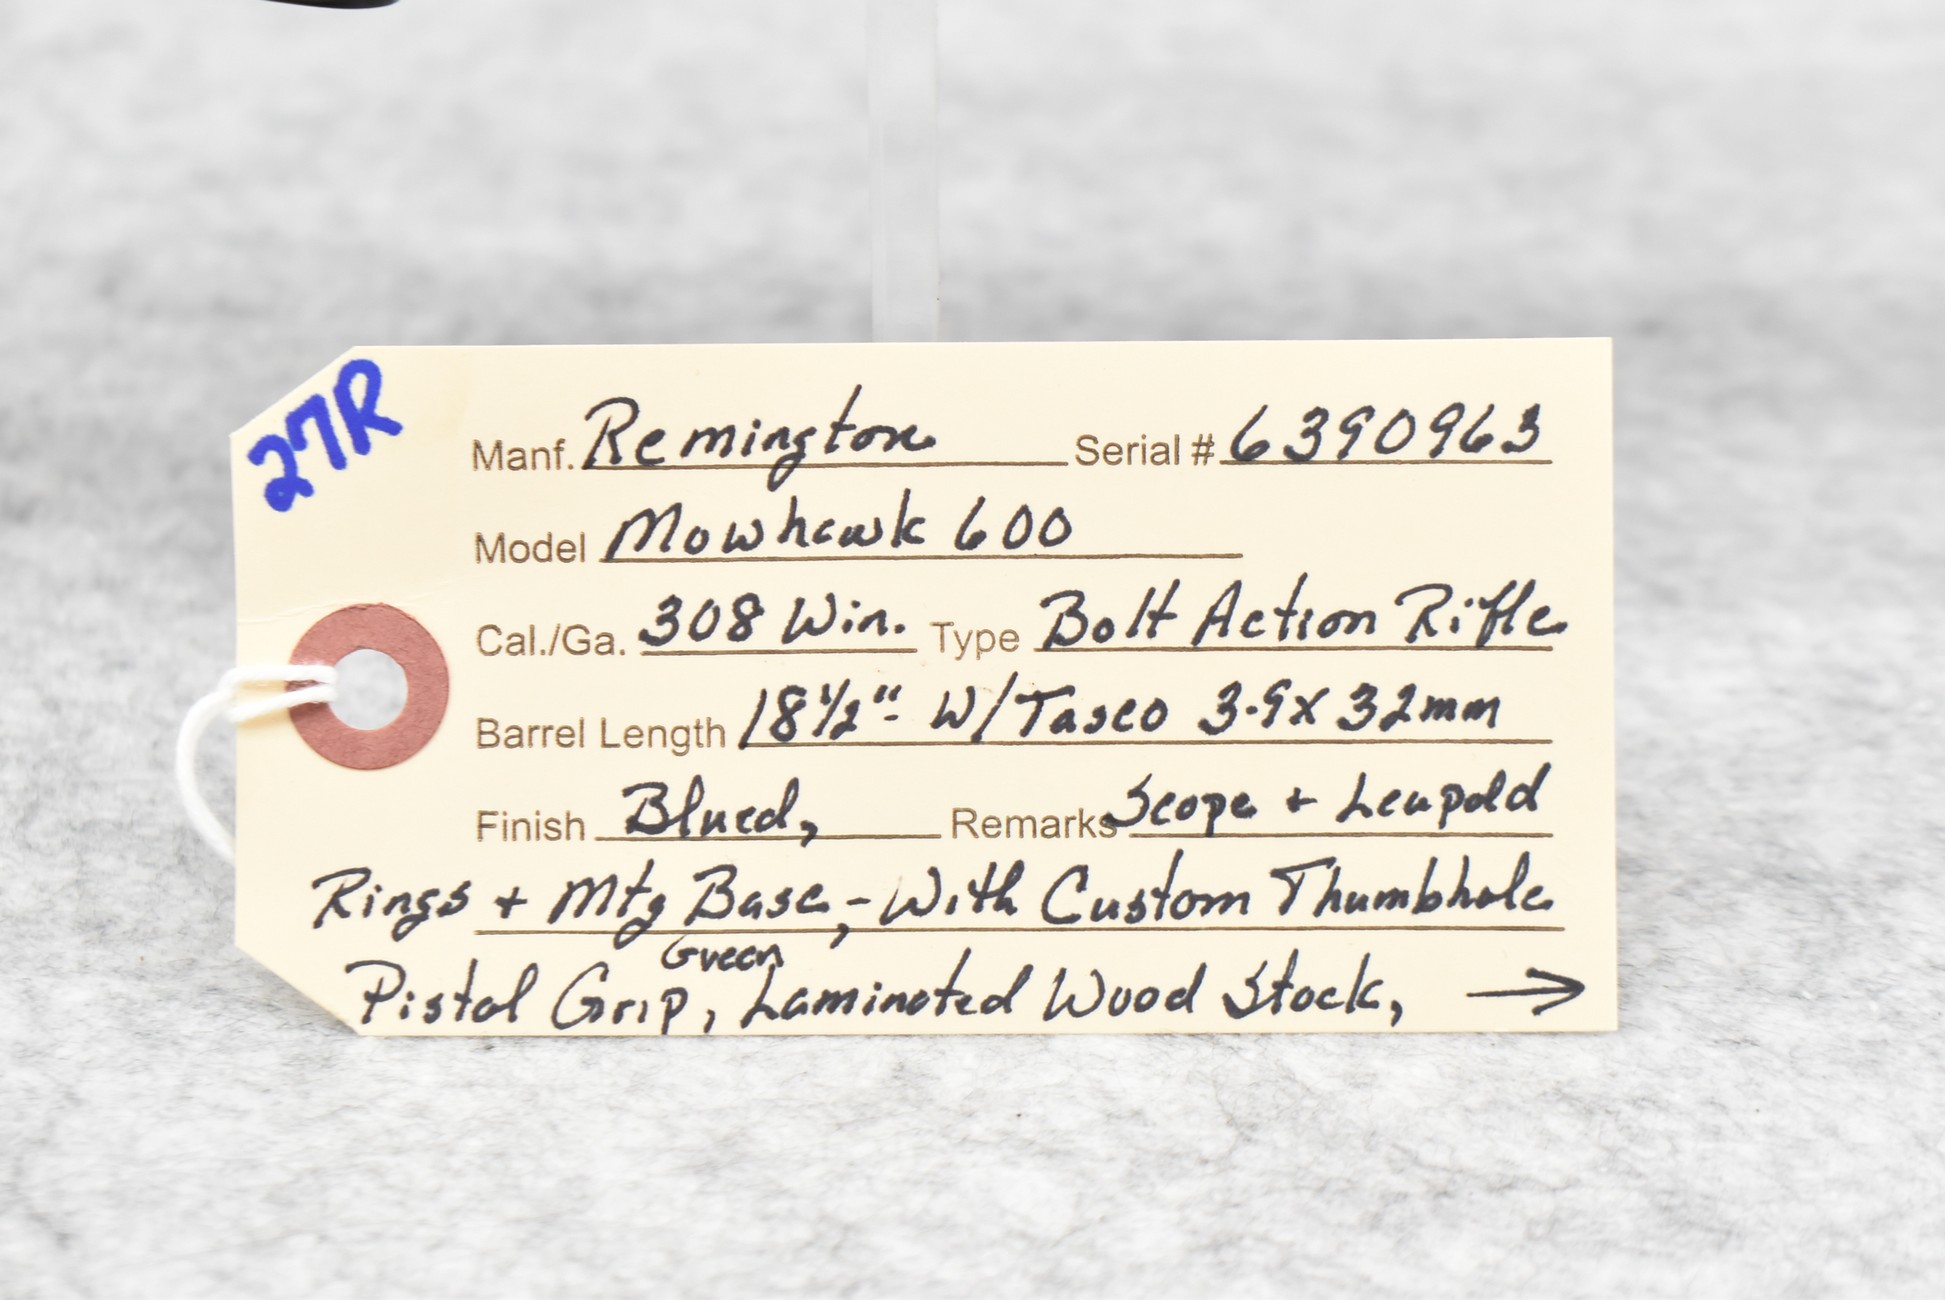 27R
Manf. Remington Serial # 6390963
Model Mowhawk 600
Cal./Ga. 308 Win. Type Bolt Action Rifle
Barrel Length 18 1/2" - W/Tasco 3-9x32mm
Finish Blued, Remarks Scope + Leupold
Rings + Mtg Base, - With Custom Thumbhole
Green
Pistol Grip, Laminated Wood Stock, →